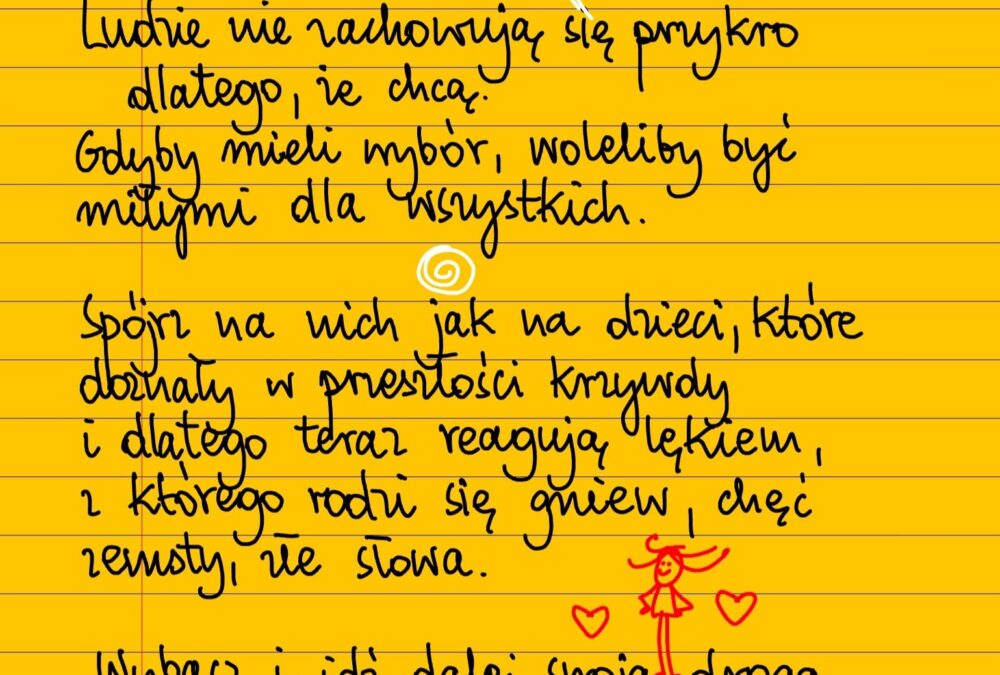 Ludzie nie zachowują się przykro
dlatego, że chcą.
Gdyby mieli wybór, woleliby być
miłymi dla wszystkich.
Spójrz na nich jak na dzieci, które
doznały w przeszłości krzywdy
i dlatego teraz reagują lękiem,
z którego rodzi się gniew, chęć
zemsty, złe słowa.
Wybacz i idź dalej swoją drogą